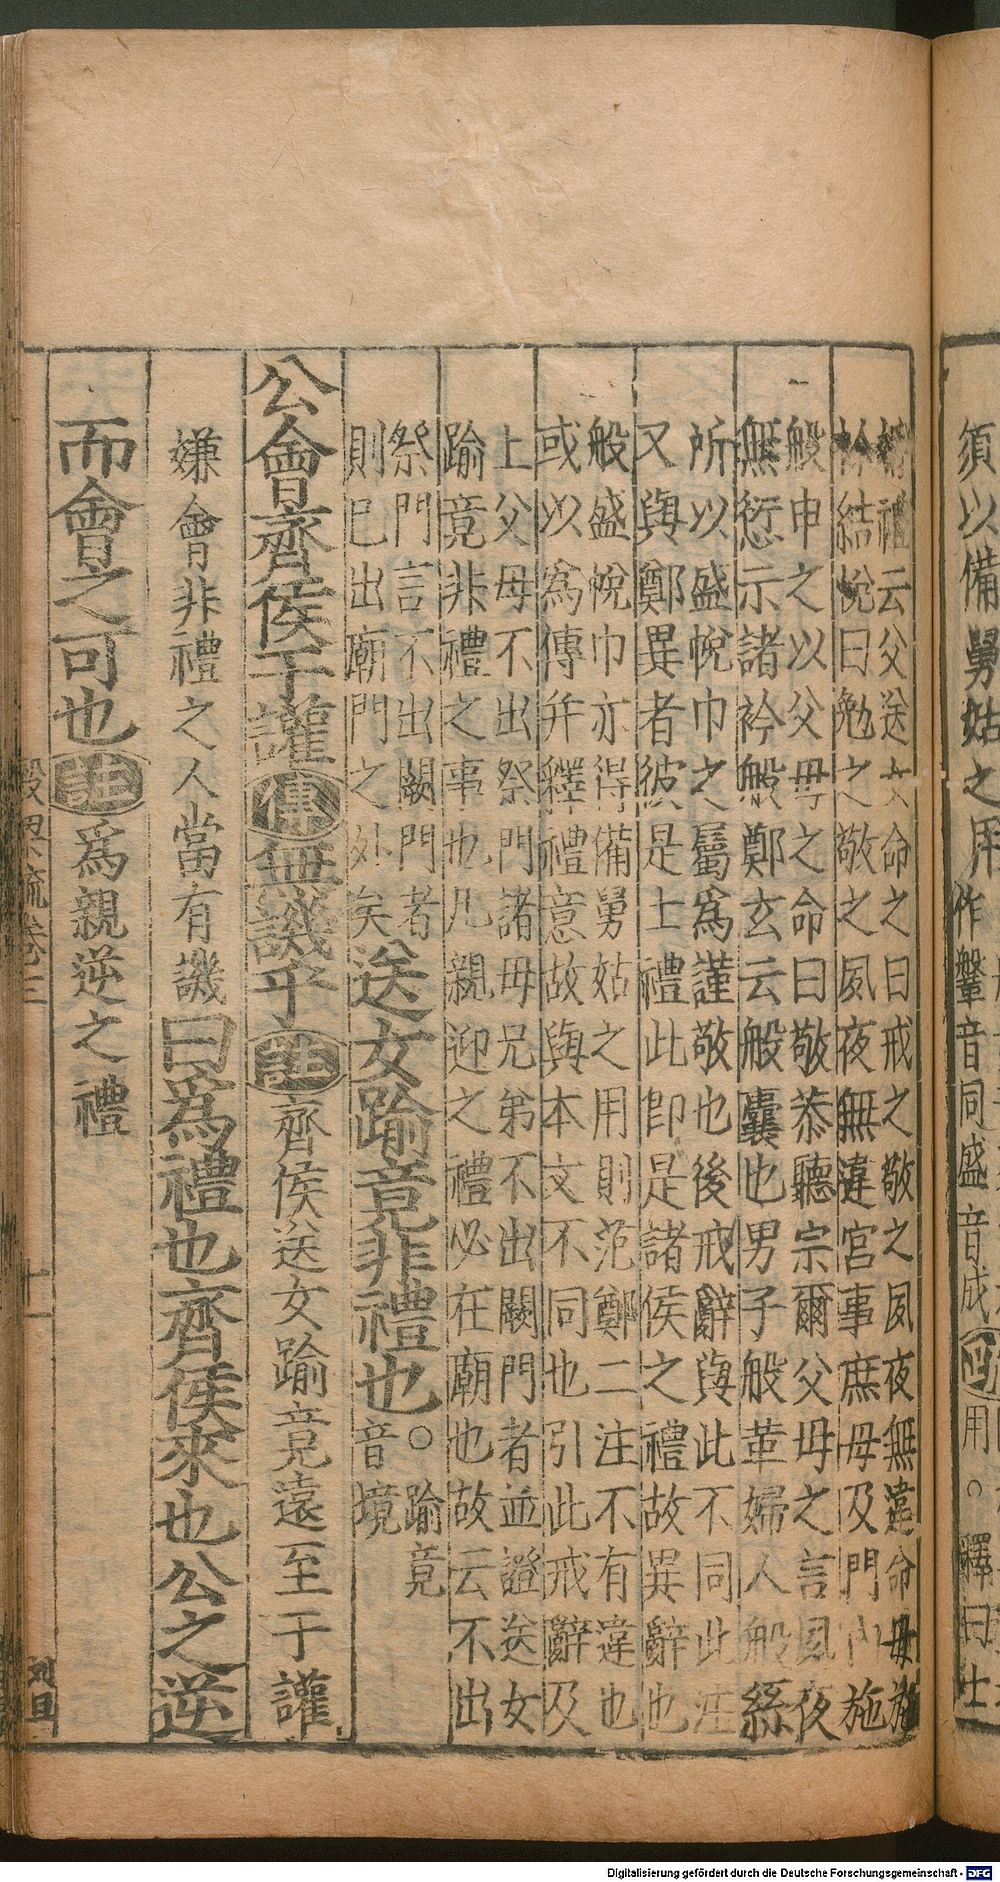 須以備舅姑之用
作鞶音同盛音成
用○釋曰士
婚禮云父送女命之曰戒之敬之夙夜無違命毋施
衿結帨曰勉之敬之夙夜無違宮事庶母及門內施
般申之以父母之命曰敬恭聽宗爾父母之言夙夜
無愆示諸衿般鄭玄云般囊也男子般革婦人般絲
所以盛帨巾之屬爲謹敬也後戒辭與此不同此注
又與鄭異者彼是士禮此即是諸侯之禮故異辭也
般盛帨巾亦得備舅姑之用則范鄭二注不有違也
或以爲傳并釋禮意故與本文不同也引此戒辭及
上父母不出祭門諸母兄弟不出闕門者並證送女
踰竟非禮之事也凡親迎之禮必在廟也故云不出
祭門言不出闕門者
則已出廟門之外矣
送女踰竟非禮也○踰竟
音境
公會齊侯于讙傳無譏乎註齊侯送女踰竟遠至于讙
嫌會非禮之人當有譏曰爲禮也齊侯來也公之逆
而會之可也註爲親逆之禮
穀梁疏卷三
十一
Digitalisierung gefördert durch die Deutsche Forschungsgemeinschaft - DFG